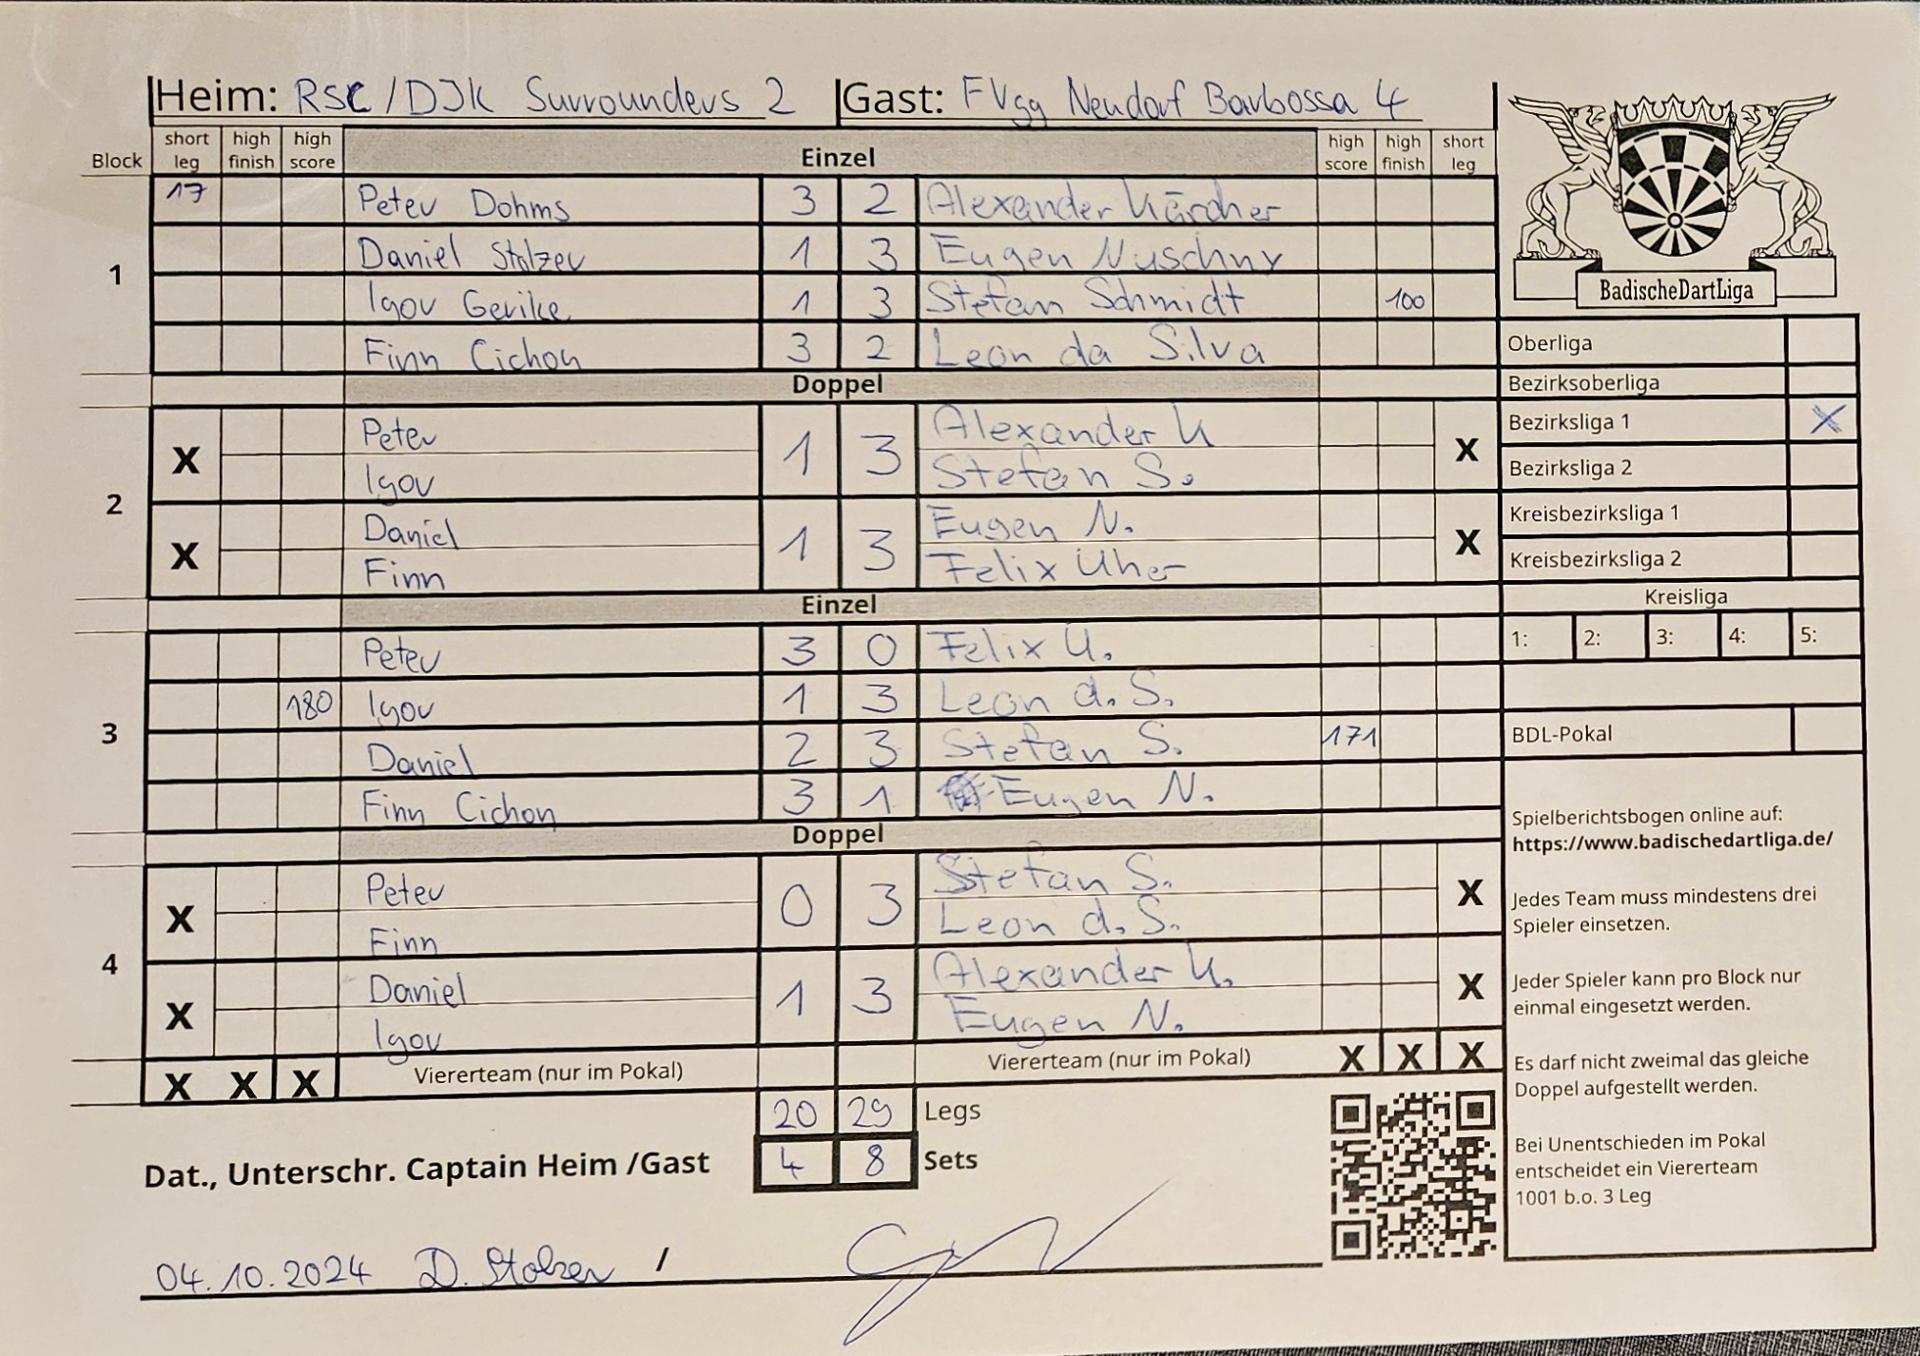 Heim: RSC/DJK Surrounders 2 Gast: FVgg Neudorf Barbossa 4
Block short leg high finish high score Einzel high score high finish short leg
BadischeDartLiga
1
17 Peter Dohms 3 2 Alexander Kärcher
Daniel Stolzer 1 3 Eugen Nuschny
Igor Gerike 1 3 Stefan Schmidt 100
Finn Cichon 3 2 Leon da Silva
Doppel
2
X Peter 1 3 Alexander K X
Igor Stefan S.
X Daniel 1 3 Eugen N. X
Finn Felix Uher
Einzel
3
Peter 3 0 Felix U.
180 Igor 1 3 Leon d. S.
Daniel 2 3 Stefan S. 171
Finn Cichon 3 1 Eugen N.
Doppel
4
X Peter 0 3 Stefan S. X
Finn Leon d. S.
X Daniel 1 3 Alexander K. X
Igor Eugen N.
X X X Viererteam (nur im Pokal) Viererteam (nur im Pokal) X X X
20 29 Legs
Dat., Unterschr. Captain Heim /Gast 4 8 Sets
04.10.2024 D. Stolzer /
Oberliga
Bezirksoberliga
Bezirksliga 1 X
Bezirksliga 2
Kreisbezirksliga 1
Kreisbezirksliga 2
Kreisliga
1: 2: 3: 4: 5:
BDL-Pokal
Spielberichtsbogen online auf:
https://www.badischedartliga.de/
Jedes Team muss mindestens drei
Spieler einsetzen.
Jeder Spieler kann pro Block nur
einmal eingesetzt werden.
Es darf nicht zweimal das gleiche
Doppel aufgestellt werden.
Bei Unentschieden im Pokal
entscheidet ein Viererteam
1001 b.o. 3 Leg